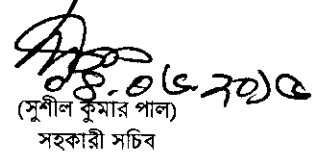 ০৪.০৬.২০১৫
(সুশীল কুমার পাল)
সহকারী সচিব